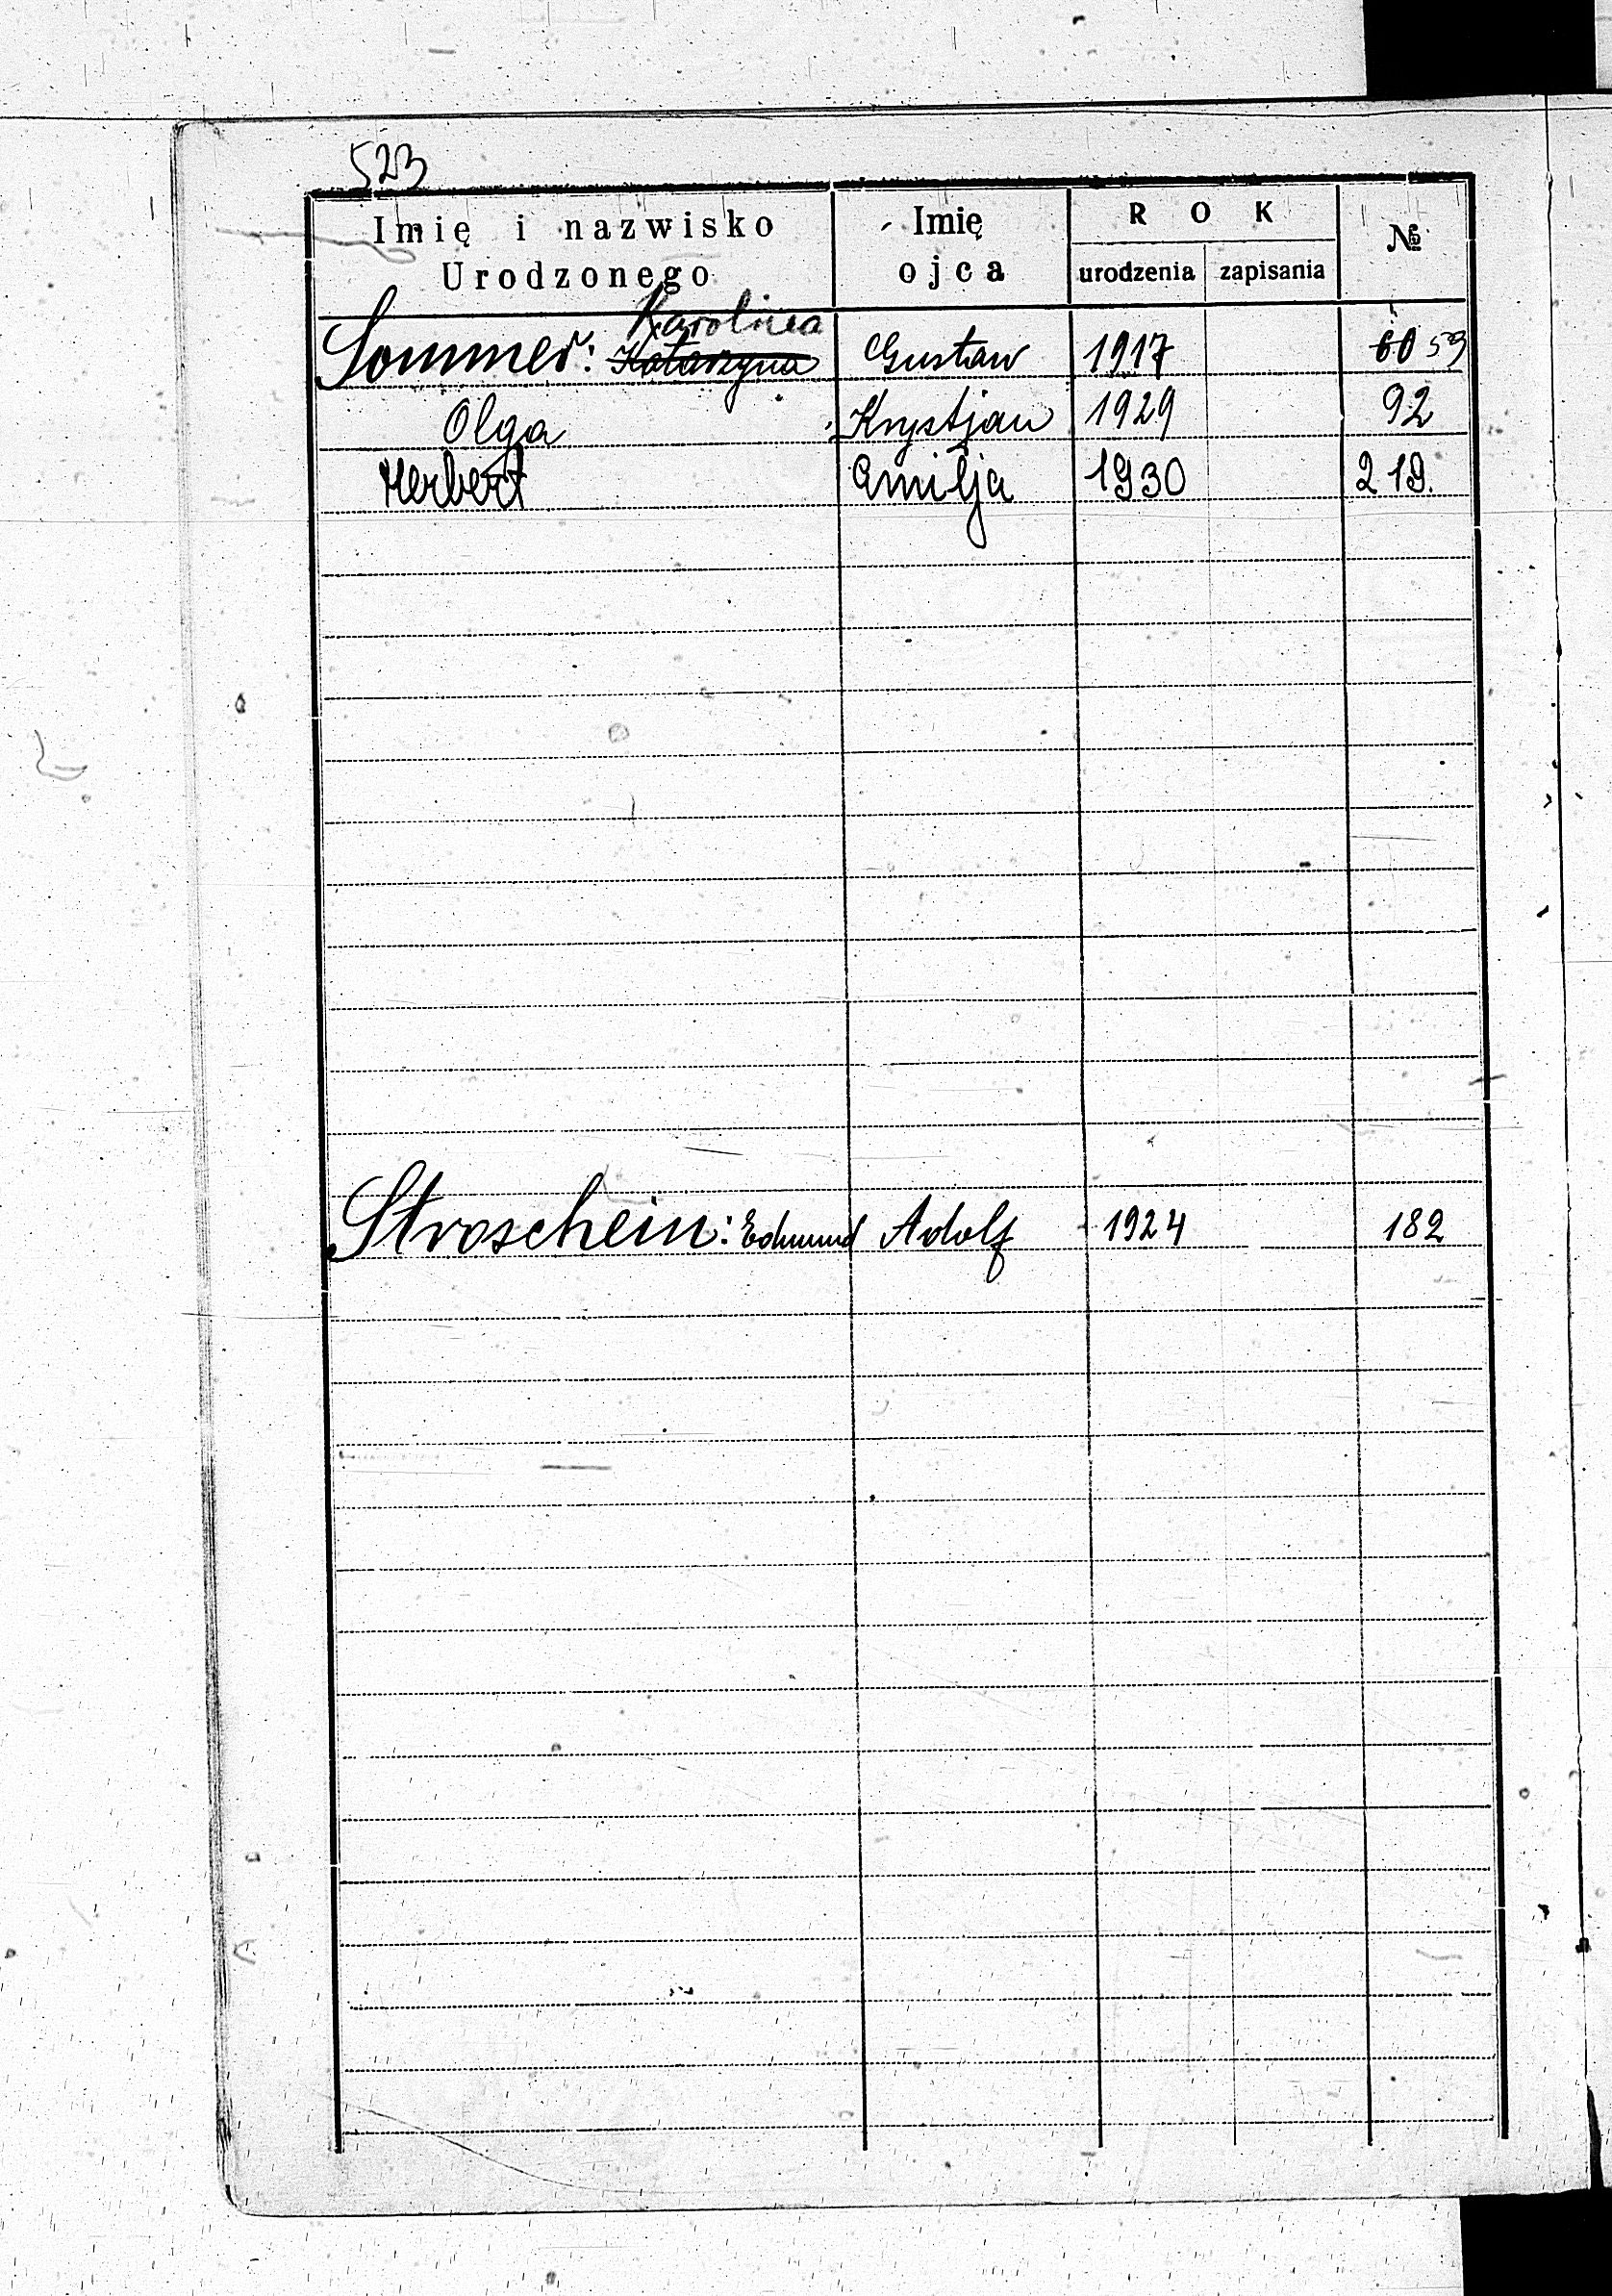 523
Imię i nazwisko Urodzonego Imię ojca ROK urodzenia zapisania №
Karolina
Sommer: Katarzyna Gustaw 1917 60 59
Olga Krystjan 1929 92
Herbert Emilja 1930 219.
Stroschein: Edmund Adolf 1924 182